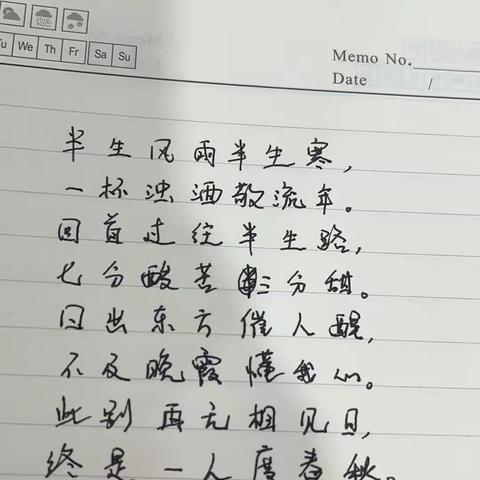 Tu We Th Fr Sa Su
Memo No.
Date /
半生风雨半生寒，
一杯浊酒敬流年。
回首过往半生路，
七分酸苦三分甜。
日出东方催人醒，
不及晚霞懂我心。
此别再无相见日，
终是一人度春秋。